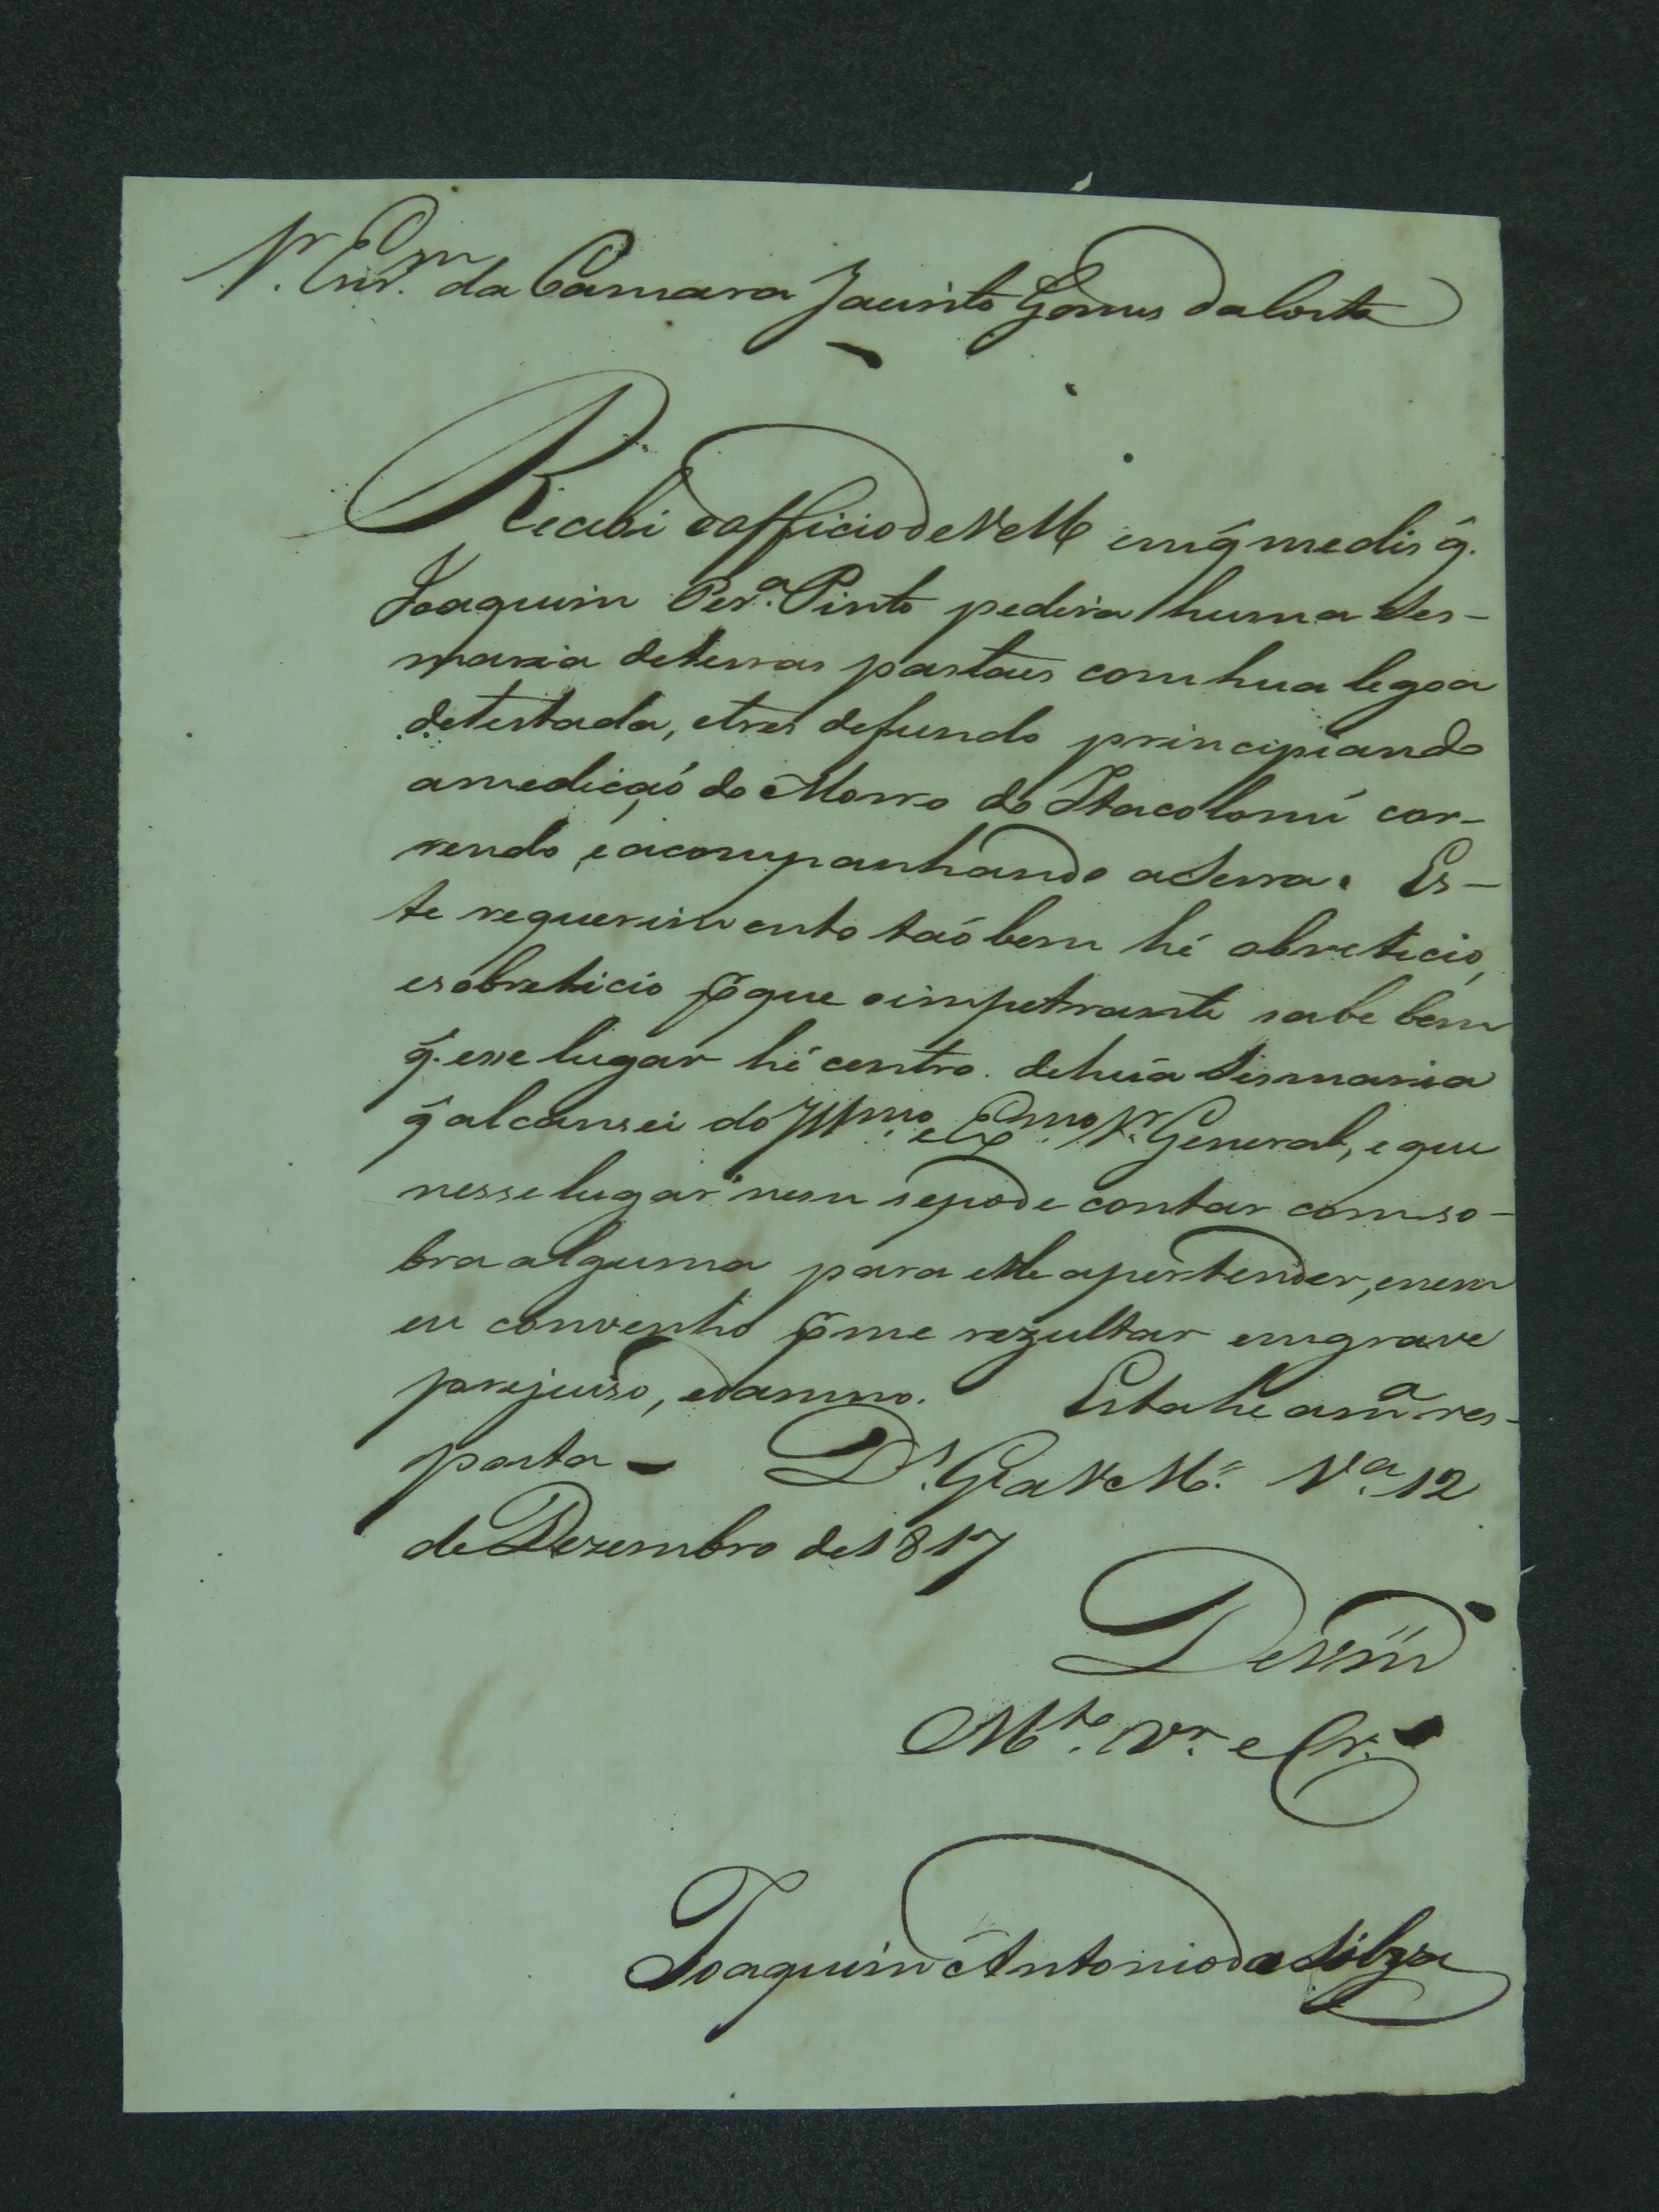 Sr. Escr.m da Camara Jacinto Gomes da Costa
Recebi o officio de VMe em q̃ me dis q̃.
Joaquim Per.a Pinto pedira huma Ses-
maria de terras pastaes com hua legoa
de testada, e tres de fundo principiando
a medição do Morro do Itacolomí cor-
rendo, e acompanhando a Serra. Es-
te requerimento taõ bem hé obreticio,
e sobreticio p̃ que o impetrante sabe bem
q̃. esse lugar hé centro. de húa Sismaria
q̃ alcansei do Illmo. e Exmo. Sr. General, e que
nesse lugar nem se pode contar com so-
bra alguma para elle a pertender, e nem
eu convenho p̃ me rezultar em grave
prejuiso, e damno. Esta he a m.a res-
posta - D.s G.e a VMe. V.a 12
de Dezembro de 1817
De Vm
M.to Vr. e Cr.
Joaquim Antonio da Silva